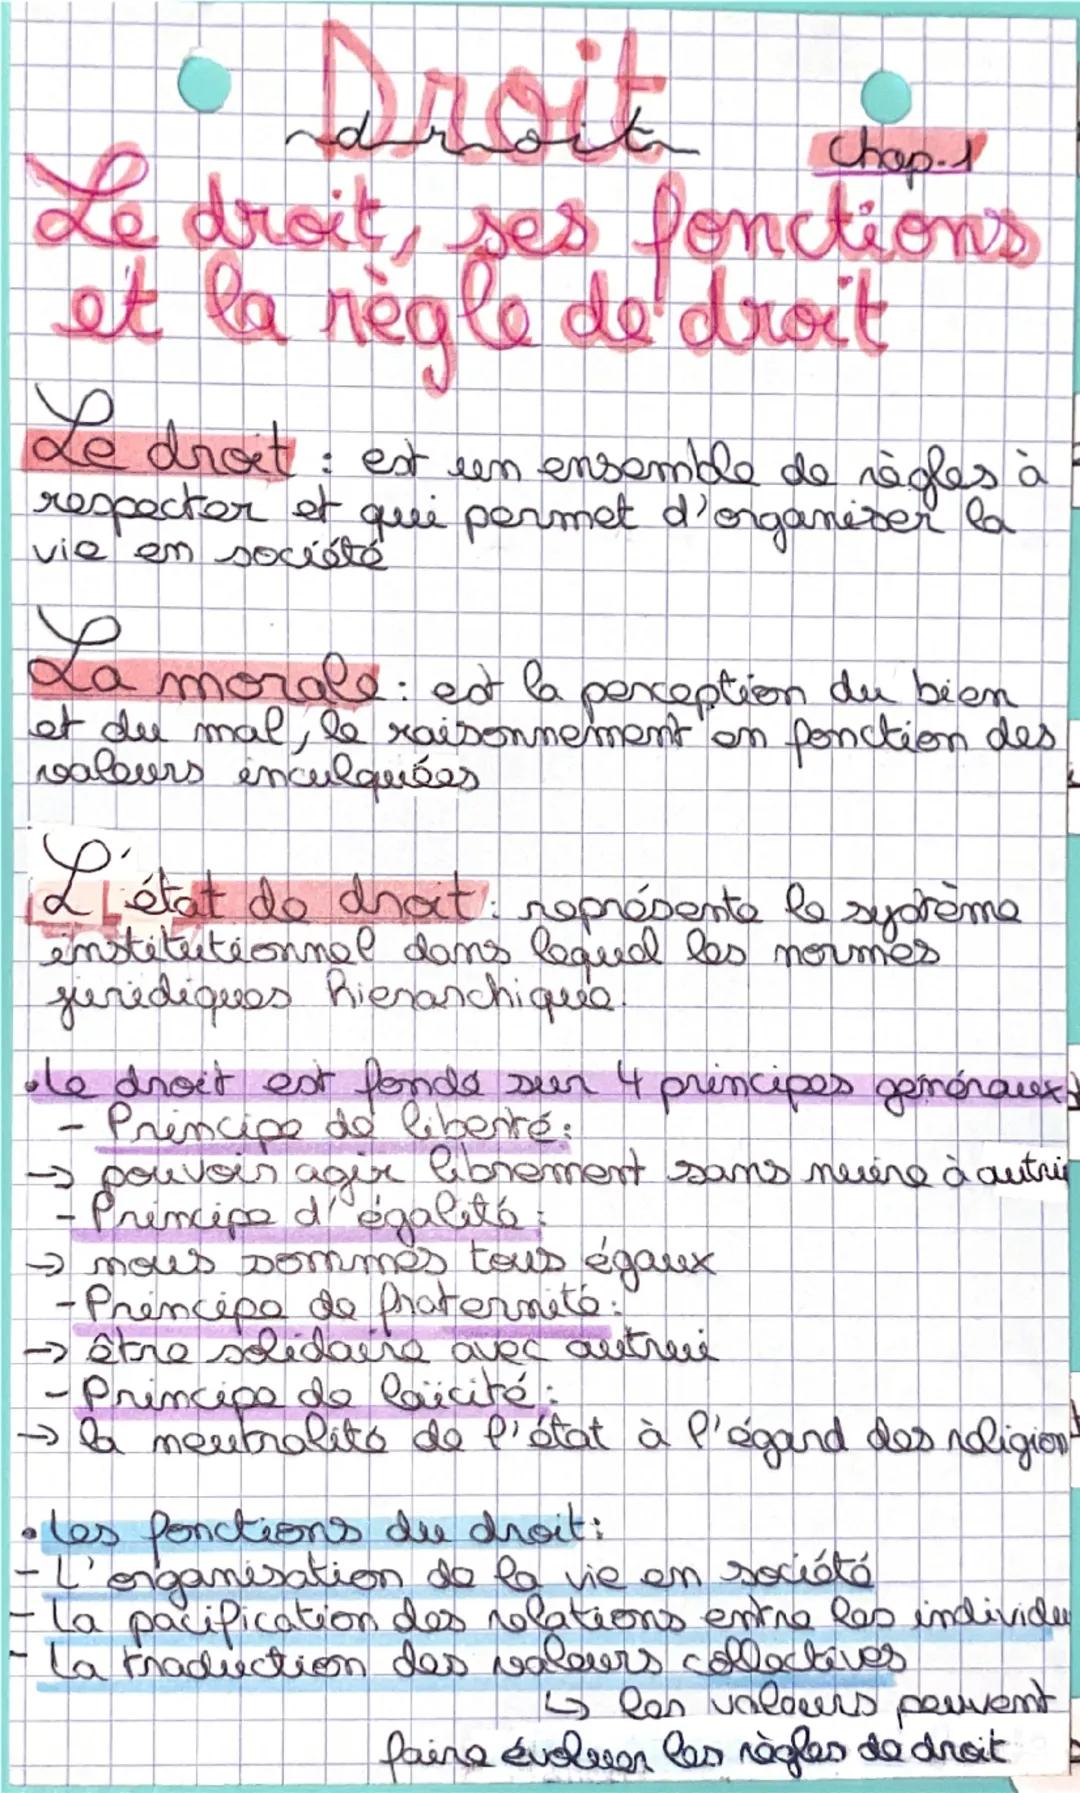 Droit
droit
Chap.1
Le droit, ses fonctions
et la règle de droit
Le droit : est un ensemble de règles à
respecter et qui permet d'organiser la
vie en société
La morale : est la perception du bien
et du mal, le raisonnement en fonction des
valeurs inculquées
L'état de droit : représente le système
institutionnel dans lequel les normes
juridiques hierarchique.
• le droit est fondé sur 4 principes généraux
- Principe de liberté :
→ pouvoir agir librement sans nuire à autrui
- Principe d'égalité :
→ nous sommes tous égaux
- Principe de fraternité :
→ être solidaire avec autrui
- Principe de laïcité :
→ la neutralité de l'état à l'égard des religion
• les fonctions du droit :
- L'organisation de la vie en société
- La pacification des relations entre les individu
- La traduction des valeurs collectives
↳ les valeurs peuvent
faire évoluer les règles de droit